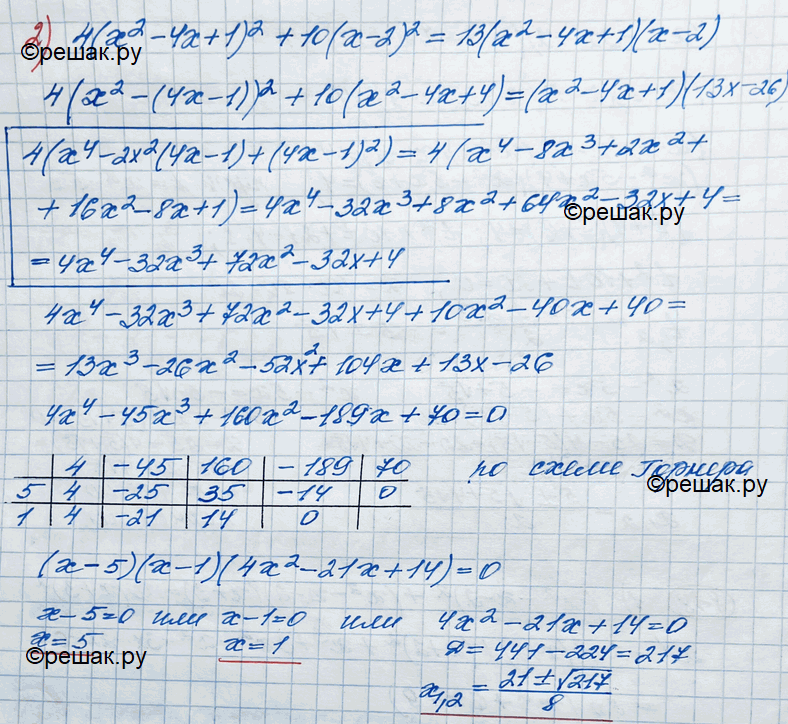 2) 4(x² - 4x + 1)² + 10(x - 2)² = 13(x² - 4x + 1)(x - 2)
©решак.ру
4(x² - (4x - 1))² + 10(x² - 4x + 4) = (x² - 4x + 1)(13x - 26)
4(x⁴ - 2x²(4x - 1) + (4x - 1)²) = 4(x⁴ - 8x³ + 2x² +
+ 16x² - 8x + 1) = 4x⁴ - 32x³ + 8x² + 64x² - 32x + 4 =
©решак.ру
= 4x⁴ - 32x³ + 72x² - 32x + 4
4x⁴ - 32x³ + 72x² - 32x + 4 + 10x² - 40x + 40 =
= 13x³ - 26x² - 52x² + 104x + 13x - 26
4x⁴ - 45x³ + 160x² - 189x + 70 = 0
4 | -45 | 160 | -189 | 70 по схеме Горнера
©решак.ру
5 | 4 | -25 | 35 | -14 | 0
1 | 4 | -21 | 14 | 0
(x - 5)(x - 1)(4x² - 21x + 14) = 0
x - 5 = 0 или x - 1 = 0 или 4x² - 21x + 14 = 0
x = 5 x = 1 D = 441 - 224 = 217
©решак.ру
x₁,₂ = (21 ± √217)/8